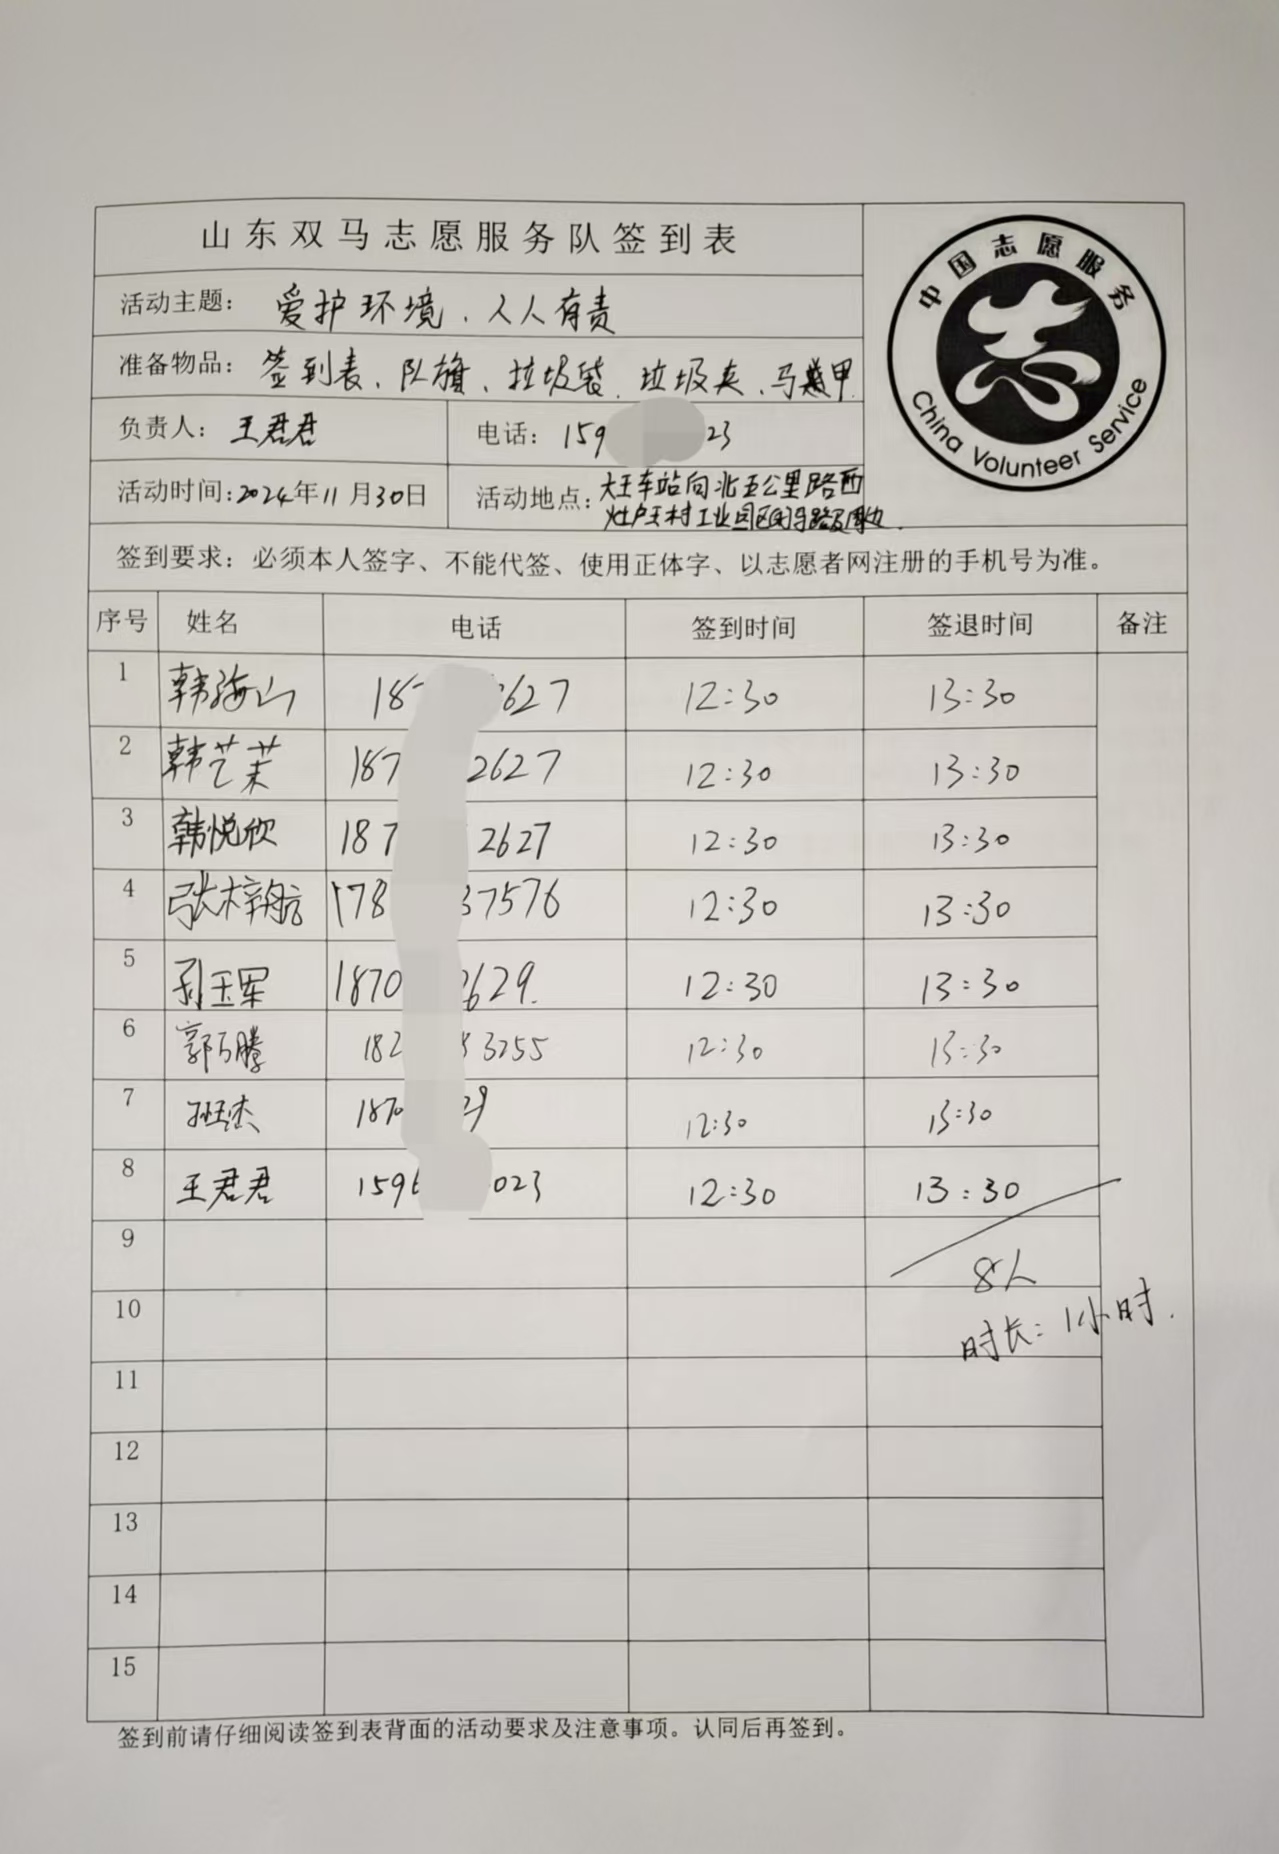 山东双马志愿服务队签到表
中国志愿服务
China Volunteer Service
活动主题：爱护环境、人人有责
准备物品：签到表、队旗、垃圾袋、垃圾夹、马甲
负责人：王君君 电话：159 23
活动时间：2024年11月30日 活动地点：大王车站向北五公里路西
灶户王村工业园区
签到要求：必须本人签字、不能代签、使用正体字、以志愿者网注册的手机号为准。
序号 姓名 电话 签到时间 签退时间 备注
1 韩海山 187 2627 12:30 13:30
2 韩艺茉 187 2627 12:30 13:30
3 韩悦欣 187 2627 12:30 13:30
4 张梓航 178 37576 12:30 13:30
5 孙玉军 1870 2629. 12:30 13:30
6 郭万腾 182 3255 12:30 13:30
7 1870 29 12:30 13:30
8 王君君 1596 023 12:30 13:30
9
8人
10
时长：1小时.
11
12
13
14
15
签到前请仔细阅读签到表背面的活动要求及注意事项。认同后再签到。